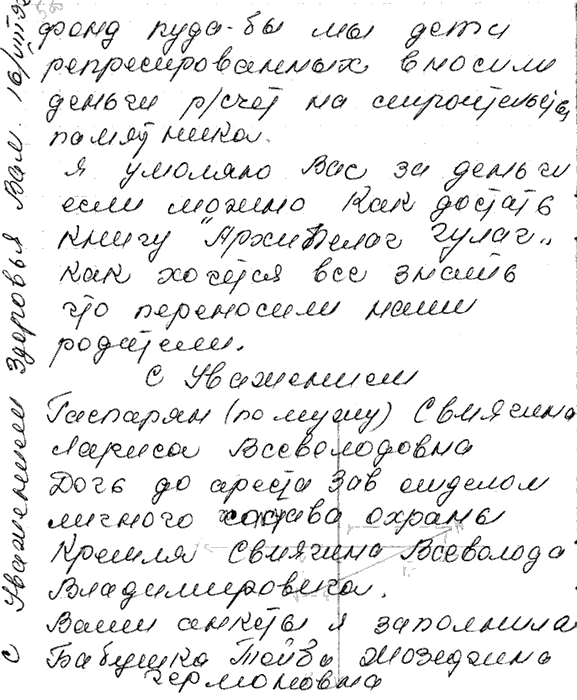 фонд куда-бы мы дети
репресированных вносили
деньги р/счет на строительств
памятника.
Я умоляю Вас за деньги
если можно как достать
книгу "Архипелаг Гулаг"
как хочется все знать
что переносили наши
родители.
С Уважением
Гаспарян (по мужу) Свиягина
Лариса Всеволодовна
Дочь до ареста Зав отделом
личного состава охраны
Кремля Свиягина Всеволода
Владимировича.
Ваши анкеты я заполнила
Бабушка
Гермоновна
С Уважением Здоровья Вам. 16/VIII